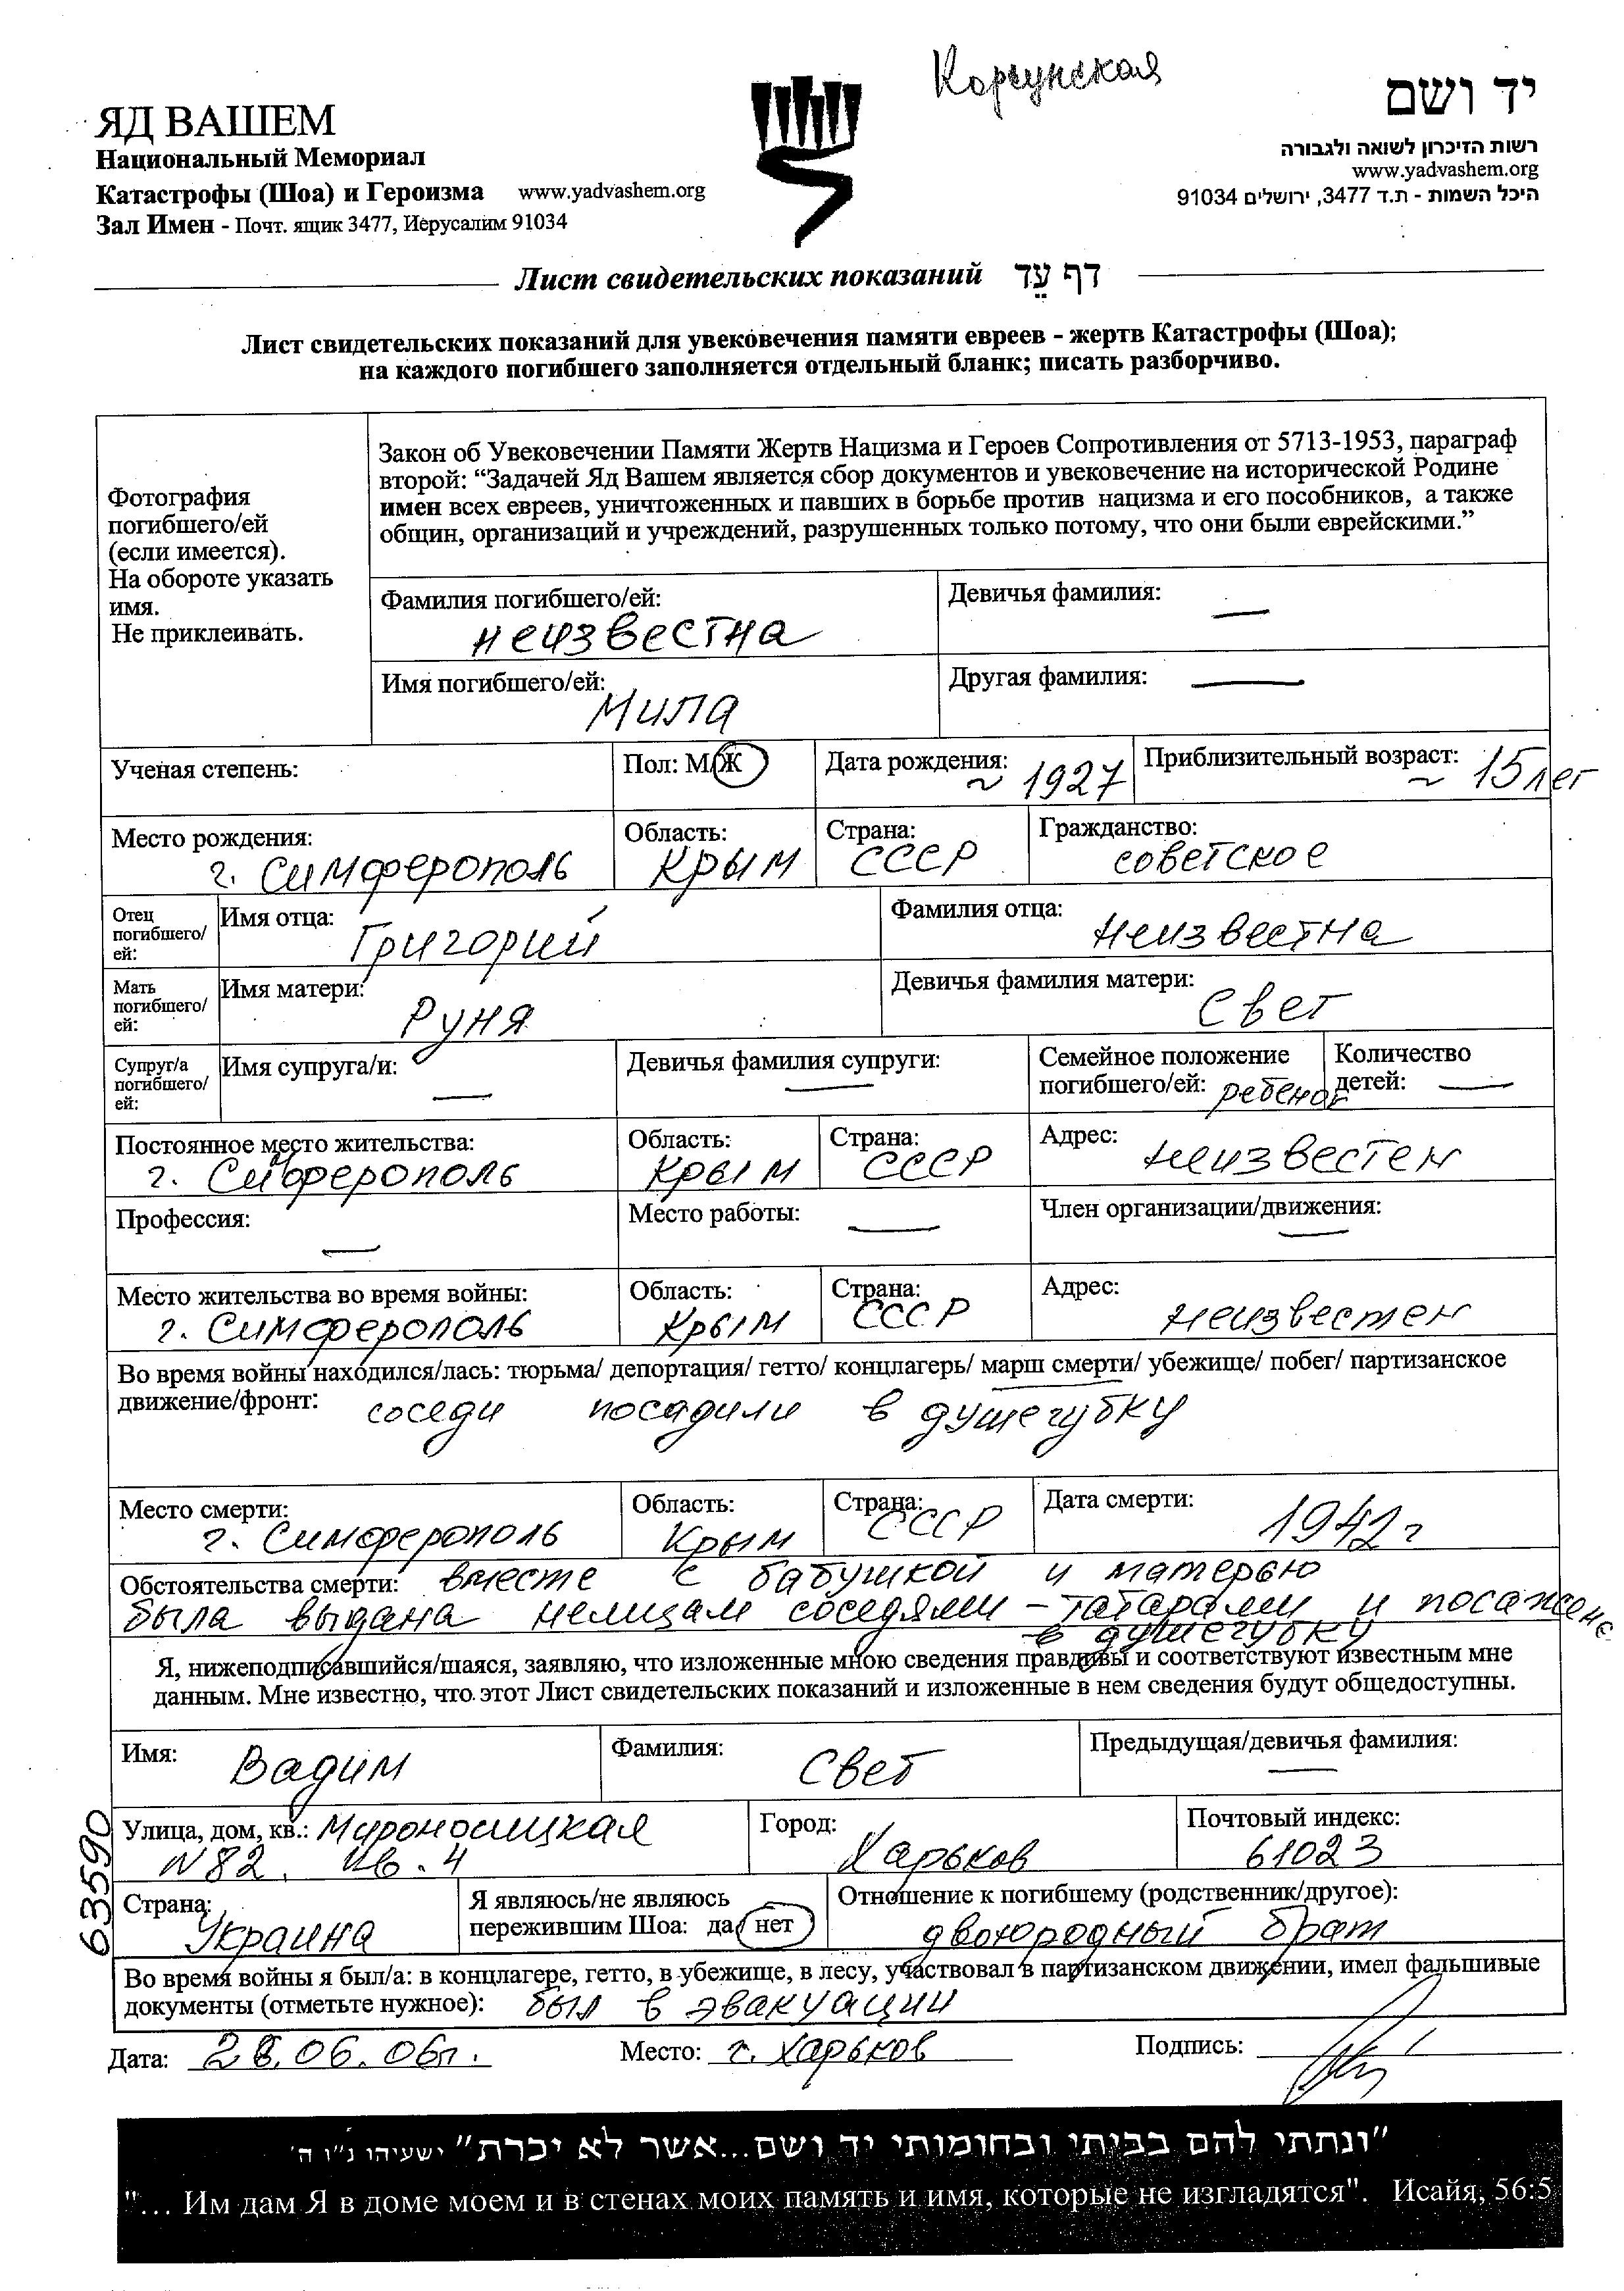 Корсунская
ЯД ВАШЕМ
Национальный Мемориал
Катастрофы (Шоа) и Героизма www.yadvashem.org
Зал Имен - Почт. ящик 3477, Иерусалим 91034
יד ושם
רשות הזיכרון לשואה ולגבורה
www.yadvashem.org
היכל השמות - ת.ד 3477, ירושלים 91034
Лист свидетельских показаний דף עֵד
Лист свидетельских показаний для увековечения памяти евреев - жертв Катастрофы (Шоа);
на каждого погибшего заполняется отдельный бланк; писать разборчиво.
Фотография
погибшего/ей
(если имеется).
На обороте указать
имя.
Не приклеивать.
Закон об Увековечении Памяти Жертв Нацизма и Героев Сопротивления от 5713-1953, параграф
второй: “Задачей Яд Вашем является сбор документов и увековечение на исторической Родине
имен всех евреев, уничтоженных и павших в борьбе против нацизма и его пособников, а также
общин, организаций и учреждений, разрушенных только потому, что они были еврейскими.”
Фамилия погибшего/ей: Девичья фамилия: —
неизвестна
Имя погибшего/ей: Другая фамилия: —
Мила
Ученая степень: Пол: М/Ж Дата рождения: Приблизительный возраст:
~ 1927 ~ 15 лет
Место рождения: Область: Страна: Гражданство:
г. Симферополь Крым СССР советское
Отец
погибшего/
ей:
Имя отца: Фамилия отца:
Григорий неизвестна
Мать
погибшего/
ей:
Имя матери: Девичья фамилия матери:
Руня Свет
Супруг/а
погибшего/
ей:
Имя супруга/и: — Девичья фамилия супруги: —
Семейное положение
погибшего/ей: ребенок
Количество
детей: —
Постоянное место жительства: Область: Страна: Адрес:
г. Симферополь Крым СССР неизвестен
Профессия: — Место работы: — Член организации/движения: —
Место жительства во время войны: Область: Страна: Адрес:
г. Симферополь Крым СССР неизвестен
Во время войны находился/лась: тюрьма/ депортация/ гетто/ концлагерь/ марш смерти/ убежище/ побег/ партизанское
движение/фронт: соседи посадили в душегубку
Место смерти: Область: Страна: Дата смерти:
г. Симферополь Крым СССР 1942 г
Обстоятельства смерти: вместе с бабушкой и матерью
была выдана немцам соседями – татарами и посажена
в душегубку
Я, нижеподписавшийся/шаяся, заявляю, что изложенные мною сведения правдивы и соответствуют известным мне
данным. Мне известно, что этот Лист свидетельских показаний и изложенные в нем сведения будут общедоступны.
Имя: Фамилия: Предыдущая/девичья фамилия: —
Вадим Свет
Улица, дом, кв.: Мироносицкая Город: Почтовый индекс:
N82, кв. 4 Харьков 61023
63590
Страна:
Украина
Я являюсь/не являюсь
пережившим Шоа: да/ нет
Отношение к погибшему (родственник/другое):
двоюродный брат
Во время войны я был/а: в концлагере, гетто, в убежище, в лесу, участвовал в партизанском движении, имел фальшивые
документы (отметьте нужное): был в эвакуации
Дата: 28.06.06г. Место: г. Харьков Подпись:
"ונתתי להם בביתי ובחומותי יד ושם...אשר לא יכרת" ישעיהו נ"ו ה'
"... Им дам Я в доме моем и в стенах моих память и имя, которые не изгладятся". Исайя, 56:5